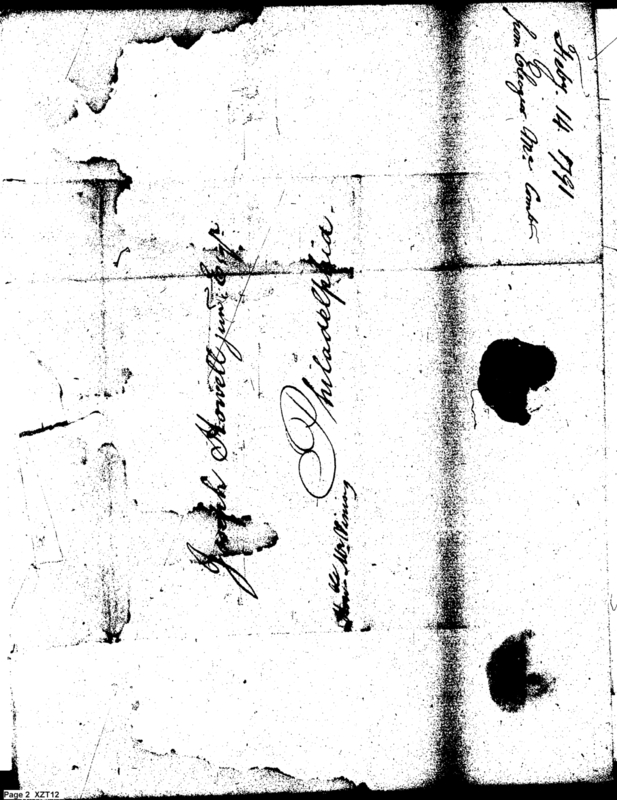 Feby. 14 1791
from Eleazer McComb
Joseph Howell junr. Esqr.
Philadelphia.
Honble Mr Vining
Page 2 XZT12